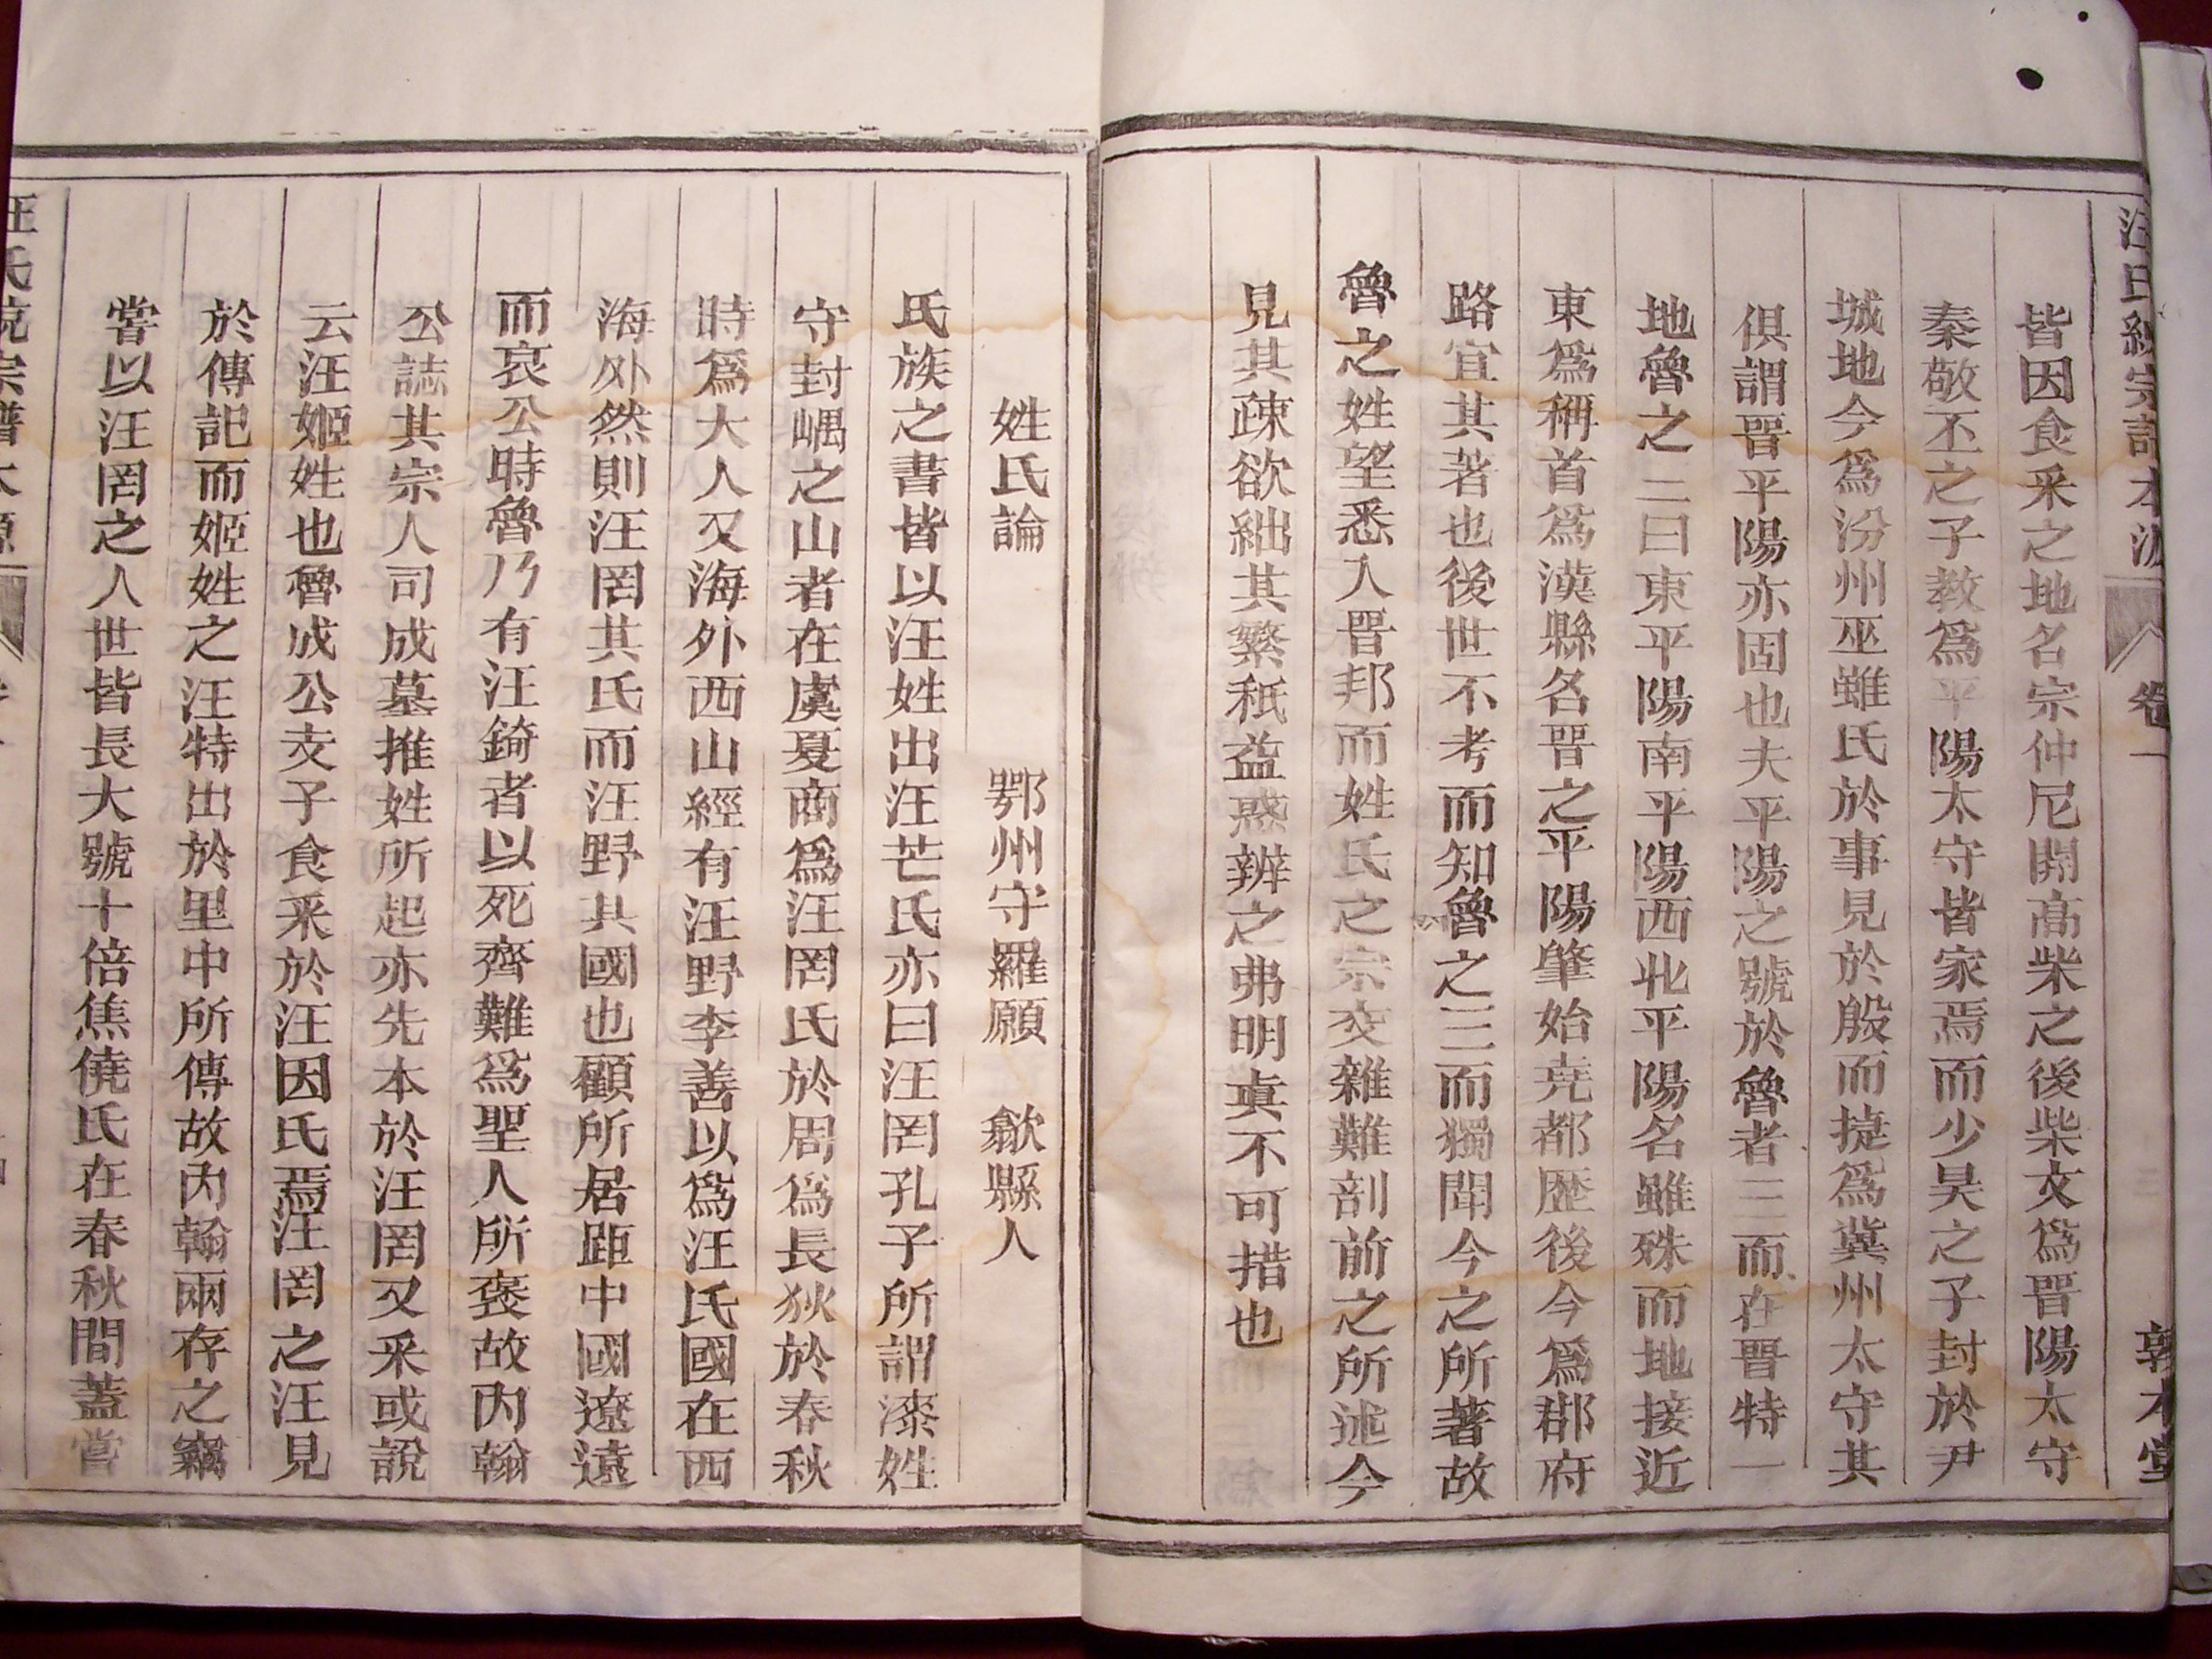 汪氏統宗譜本源 卷一 敦本堂
皆因食采之地名宗仲尼閼高柴之後柴文爲晉陽太守
秦敬丕之子教爲平陽太守皆家焉而少昊之子封於尹
城地今爲汾州巫雖氏於事見於殷而㨗爲冀州太守其
俱謂晉平陽亦固也夫平陽之號於魯者三而在晉特一
地魯之三曰東平陽南平陽西北平陽名雖殊而地接近
東爲稱首爲漢縣名晉之平陽肇始堯都歷後今爲郡府
路宜其著也後世不考而知魯之三而獨聞今之所著故
魯之姓望悉入晉邦而姓氏之宗交雜難剖前之所述今
見其疎欲絀其繁秖益惑辨之弗明眞不可措也
姓氏論 鄂州守羅願 歙縣人
氏族之書皆以汪姓出汪芒氏亦曰汪罔孔子所謂漆姓
守封嵎之山者在虞夏商爲汪罔氏於周爲長狄於春秋
時爲大人又海外西山經有汪野李善以爲汪氏國在西
海外然則汪罔其氏而汪野其國也顧所居距中國遼遠
而哀公時魯乃有汪錡者以死齊難爲聖人所褒故内翰
公誌其宗人司成墓推姓所起亦先本於汪罔又采或說
云汪姬姓也魯成公支子食采於汪因氏焉汪罔之汪見
於傳記而姬姓之汪特出於里中所傳故内翰兩存之竊
嘗以汪罔之人世皆長大號十倍焦僥氏在春秋間蓋嘗
汪氏統宗譜本源